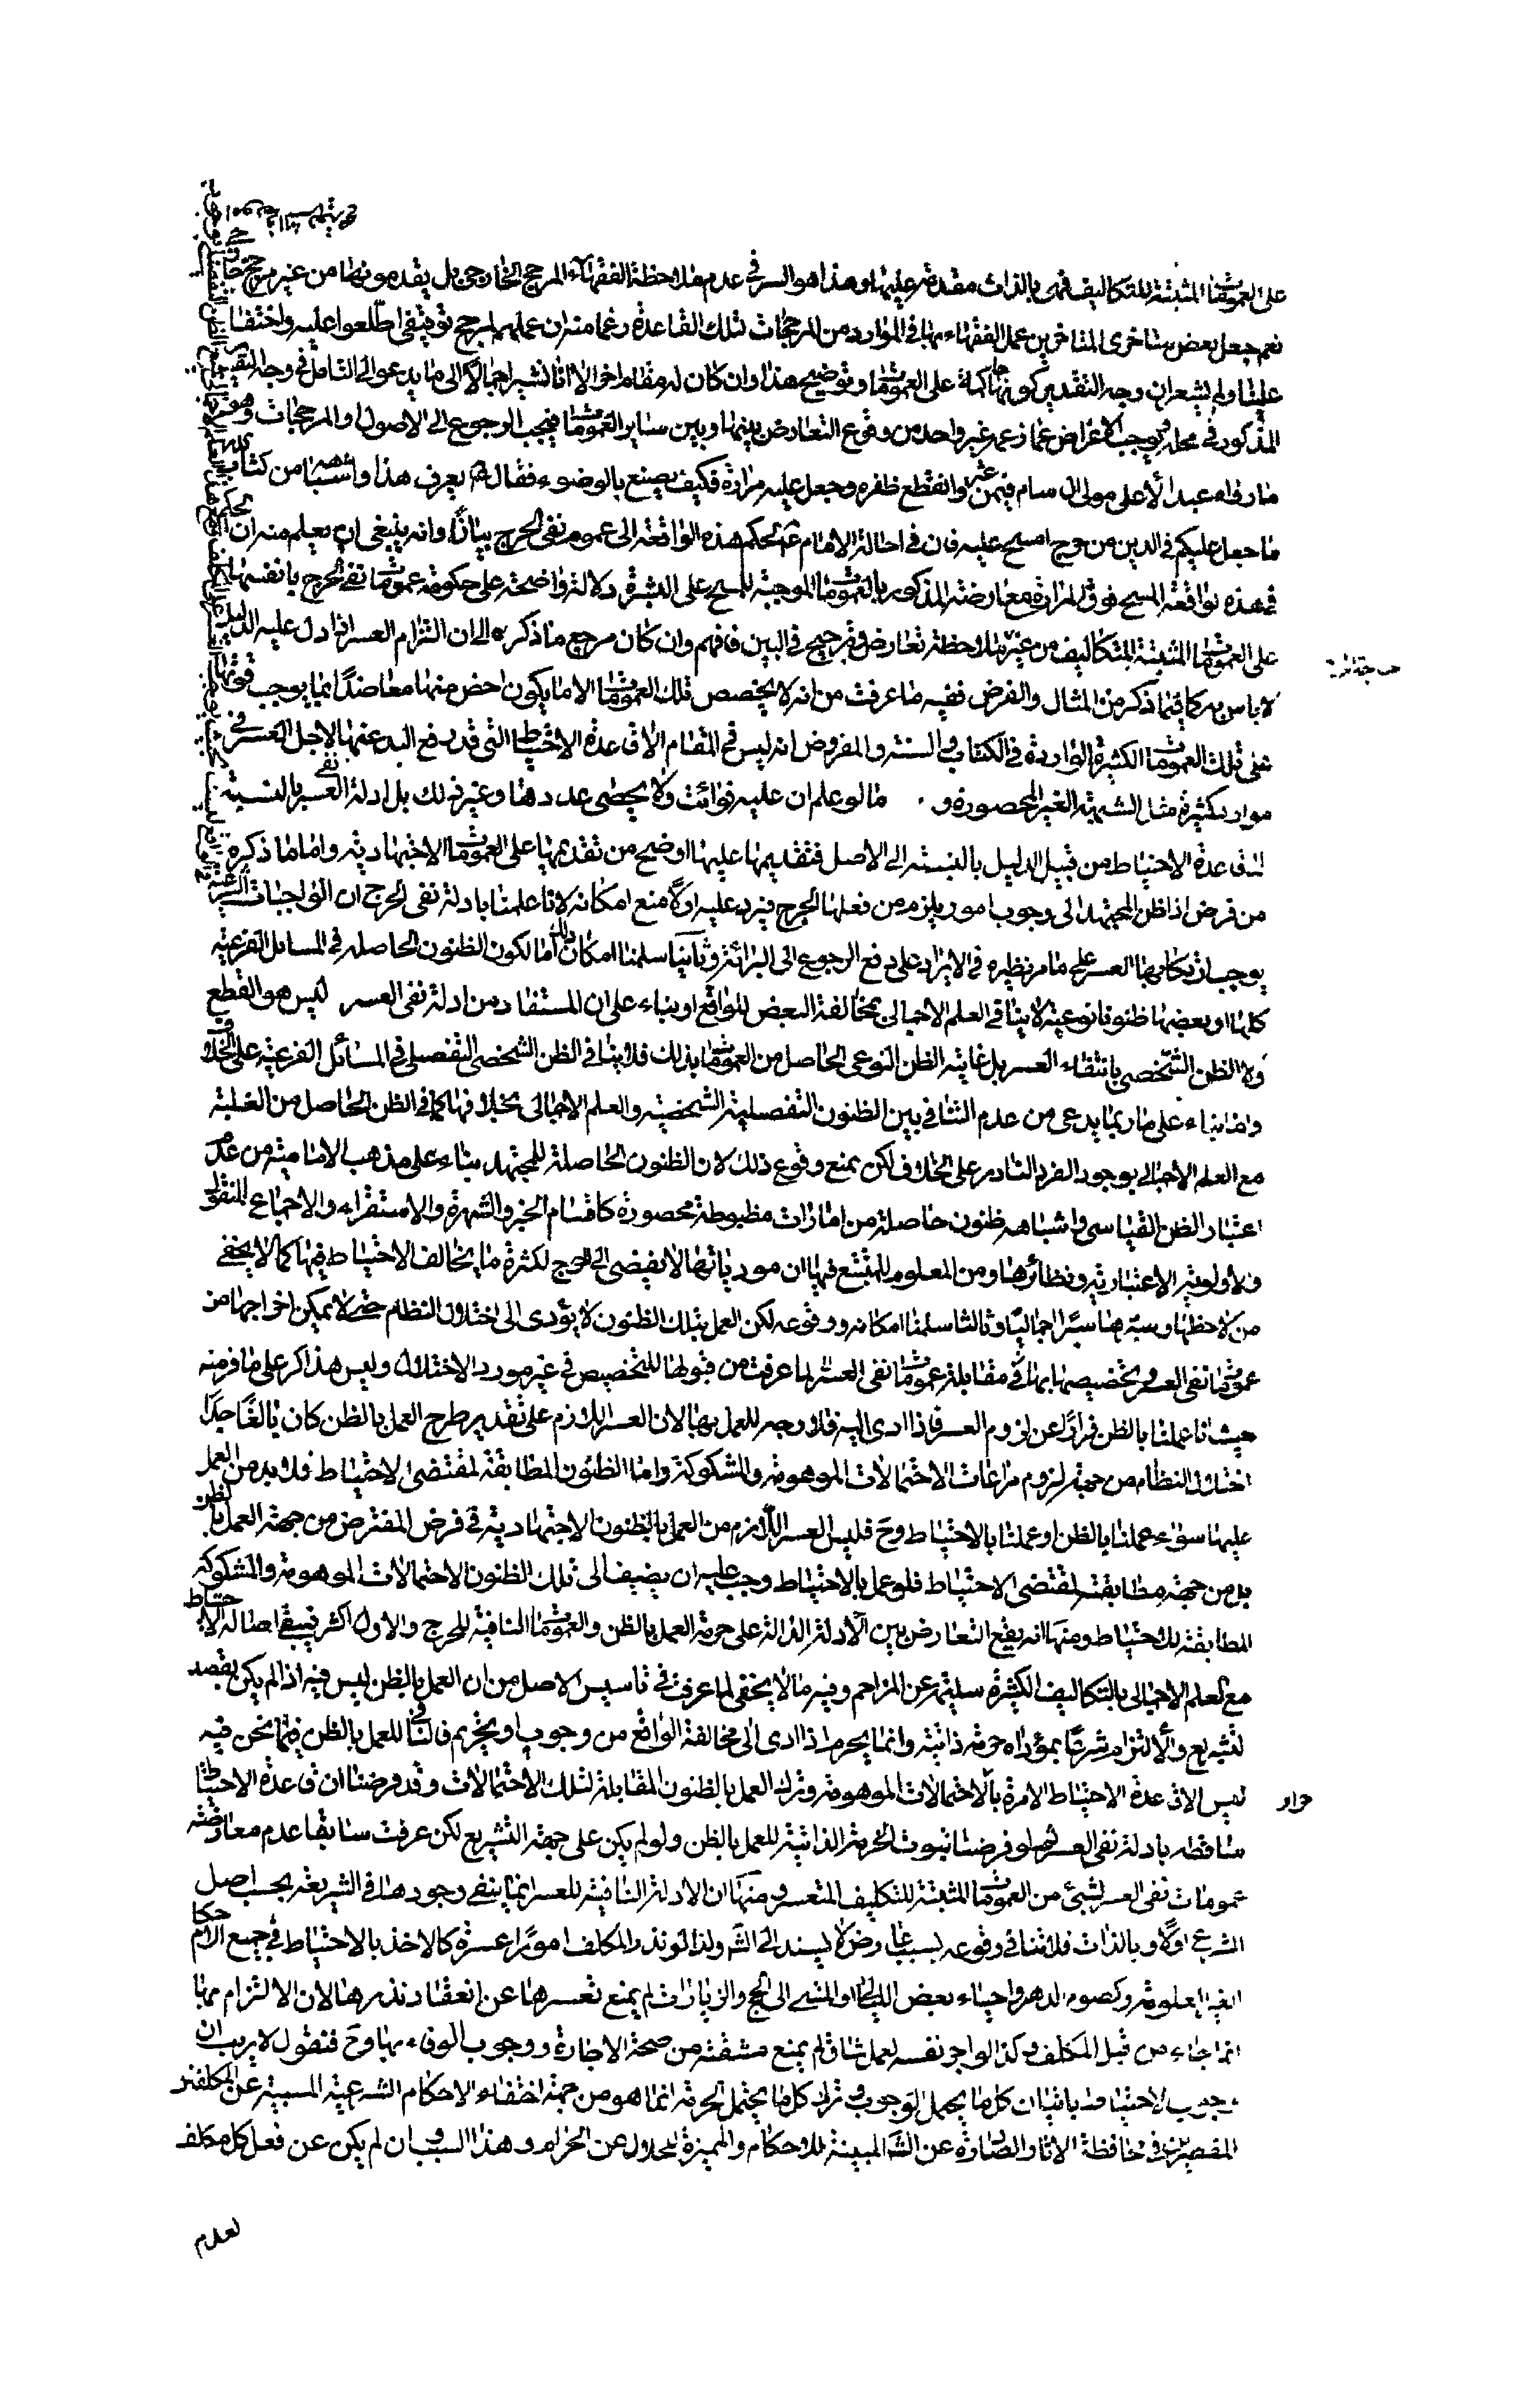 على العمومات المثبتة للتكاليف فهى بالذات مقدمة عليها وهذا هو السر فى عدم ملاحظة الفقهاء المرجح الخارجى بل يقدمونها من غير مرجح خارجى
نعم جعل بعض متاخرى المتاخرين عمل الفقهاء بها فى الموارد من المرجحات لتلك القاعدة زعما منه ان عملهم لمرجح توقيفى اطلعوا عليه واختفى
علينا ولم يشعر ان وجه التقديم كونها حاكمة على العمومات وتوضيح هذا وان كان له مقام اخر الا انا نشير اجمالا الى ما يدعو الى التامل فى وجه التقديم
المذكور فى محله ويوجب الاعراض عما زعمه غير واحد من وقوع التعارض بينها وبين ساير العمومات فيجب الرجوع الى الاصول او المرجحات وهو
ما رواه عبد الاعلى مولى ال سام فيمن عثر وانقطع ظفره وجعل عليه مرارة فكيف يصنع بالوضوء فقال يعرف هذا واشباهه من كتاب الله
ما جعل عليكم فى الدين من حرج امسح عليه فان فى احالة الامام لحكم هذه الواقعة الى عموم نفى الحرج بيانا وانه ينبغى ان يعلم منه ان الحكم
فى هذه الواقعة المسح فوق المرارة مع معارضة المذكور بالعمومات الموجبة للمسح على البشرة دلالة واضحة على حكومة عمومات نفى الحرج بانفسها
على العمومات المثبتة للتكاليف من غير ملاحظة تعارض وترجيح فى البين فافهم وان كان مرجع ما ذكره الى ان التزام العسر اذا دل عليه الدليل
لا باس به كما فيما ذكر من المثال والفرض ففيه ما عرفت من انه لا يخصص تلك العمومات الا ما يكون اخص منها معاضدا بما يوجب قوتها
على تلك العمومات الكثيرة الواردة فى الكتاب والسنة والمفروض انه ليس فى المقام الا قاعدة الاحتياط التى قد رفع اليد عنها لاجل العسر فى
موارد كثيرة مثل الشبهة الغير المحصورة و ما لو علم ان عليه فوائت ولا يحصى عددها وغير ذلك بل ادلة نفى العسر بالنسبة
لقاعدة الاحتياط من قبيل الدليل بالنسبة الى الاصل فتقديمها عليها اوضح من تقديمها على العمومات الاجتهادية واما ما ذكره
من فرض اذا ظن المجتهد الى وجوب امور يلزم من فعلها الحرج فيرد عليه اولا منع امكانه لانا علمنا بادلة نفى الحرج ان الواجبات الشرعية
يوجب ارتكابها العسر على ما مر نظيره فى الايراد على دفع الرجوع الى البرائة وثانيا سلمنا امكان ذلك اما لكون الظنون الحاصلة فى المسائل الفرعية
كلها او بعضها ظنونا نوعية لا ينافى العلم الاجمالى بمخالفة البعض للواقع او بناء على ان المستفاد من ادلة نفى العسر ليس هو القطع
ولا الظن الشخصى بانتفاء العسر بل غايته الظن النوعى الحاصل من العمومات بذلك فلا ينافى الظن الشخصى التفصيلى فى المسائل الفرعية على الخلاف
واما بناء على ما ربما يدعى من عدم التنافى بين الظنون التفصيلية الشخصية والعلم الاجمالى بخلافها كما فى الظن الحاصل من الغلبة
مع العلم الاجمالى بوجود الفرد النادر على الخلاف لكن يمنع وقوع ذلك لان الظنون الحاصلة للمجتهد بناء على مذهب الامامية من عدم
اعتبار الظن القياسى واشباهه ظنون حاصلة من امارات مظبوطة محصورة كاقسام الخبر والشهرة والاستقراء والاجماع المنقول
والاولوية الاعتبارية ونظائرها ومن المعلوم للمتتبع فيها ان مودياتها لا يفضى الى الحرج لكثرة ما يخالف الاحتياط فيها كما لا يخفى
من لاحظها وسبرها سبرا اجماليا وثالثا سلمنا امكانه ووقوعه لكن العمل بتلك الظنون لا يؤدى الى اختلال النظام حتى لا يمكن اخراجها من
عمومات نفى العسر وتخصيصها بها فى مقابلة عمومات نفى العسر لما عرفت من قبولها للتخصيص فى غير مورد الاختلال وليس هذا كر على ما فر منه
حيث انا عملنا بالظن فرارا عن لزوم العسر فاذا ادى اليه فلا وجه للعمل بها لان العسر اللازم على تقدير طرح العمل بالظن كان بالغا حد
اختلال النظام من جهة لزوم مراعات الاحتمالات الموهومة والمشكوكة واما الظنون المطابقة لمقتضى الاحتياط فلا بد من العمل
عليها سواء عملنا بالظن او عملنا بالاحتياط وح فليس العسر اللازم من العمل بالظنون الاجتهادية فى فرض المفترض من جهة العمل بالظن
بل من جهة مطابقته لمقتضى الاحتياط فلو عمل بالاحتياط وجب عليه ان يضيف الى تلك الظنون الاحتمالات الموهومة والمشكوكة
المطابقة للاحتياط ومنها انه يقع التعارض بين الادلة الدالة على حرمة العمل بالظن والعمومات النافية للحرج والاول اكثر فيبقى اصالة الاحتياط
مع العلم الاجمالى بالتكاليف الكثيرة سليمة عن المزاحم وفيه ما لا يخفى لما عرفت فى تاسيس الاصل من ان العمل بالظن ليس فيه اذا لم يكن بقصد
التشريع والالتزام شرعا بمؤداه حرمة ذاتية وانما يحرم اذا ادى الى مخالفة الواقع من وجوب او تحريم فالنافى للعمل بالظن فيما نحن فيه
ليس الا قاعدة الاحتياط الامرة بالاحتمالات الموهومة وترك العمل بالظنون المقابلة لتلك الاحتمالات وقد فرضنا ان قاعدة الاحتياط
ساقطة بادلة نفى العسر ثم لو فرضنا ثبوت الحرمة الذاتية للعمل بالظن ولو لم يكن على جهة التشريع لكن عرفت سابقا عدم معارضة
عمومات نفى العسر لشيئ من العمومات المثبتة للتكليف المتعسر ومنها ان الادلة النافية للعسر انما ينفى وجودها فى الشريعة بحسب اصل
الشرع اولا وبالذات فلا تنافى وقوعه بسبب عارض لا يسند الى الشرع ولذا لو نذر المكلف امورا عسرة كالاخذ بالاحتياط فى جميع الاحكام
الغير المعلومة وكصوم الدهر واحياء بعض الليالى او المشى الى الحج والزيارات لم يمنع تعسرها عن انعقاد نذرها لان الالتزام بها
انما جاء من قبل المكلف وكذا لو اجر نفسه لعمل شاق لم يمنع مشقته من صحة الاجارة ووجوب الوفاء بها وح فنقول لا ريب ان
وجوب الاحتياط باتيان كل ما يحتمل الوجوب وترك كل ما يحتمل الحرمة انما هو من جهة اختفاء الاحكام الشرعية المسببة عن المكلفين
المقصرين فى محافظة الاثار الصادرة عن الشارع المبينة للاحكام والمميزة للحلال عن الحرام وهذا السبب وان لم يكن عن فعل كل مكلف
لعدم